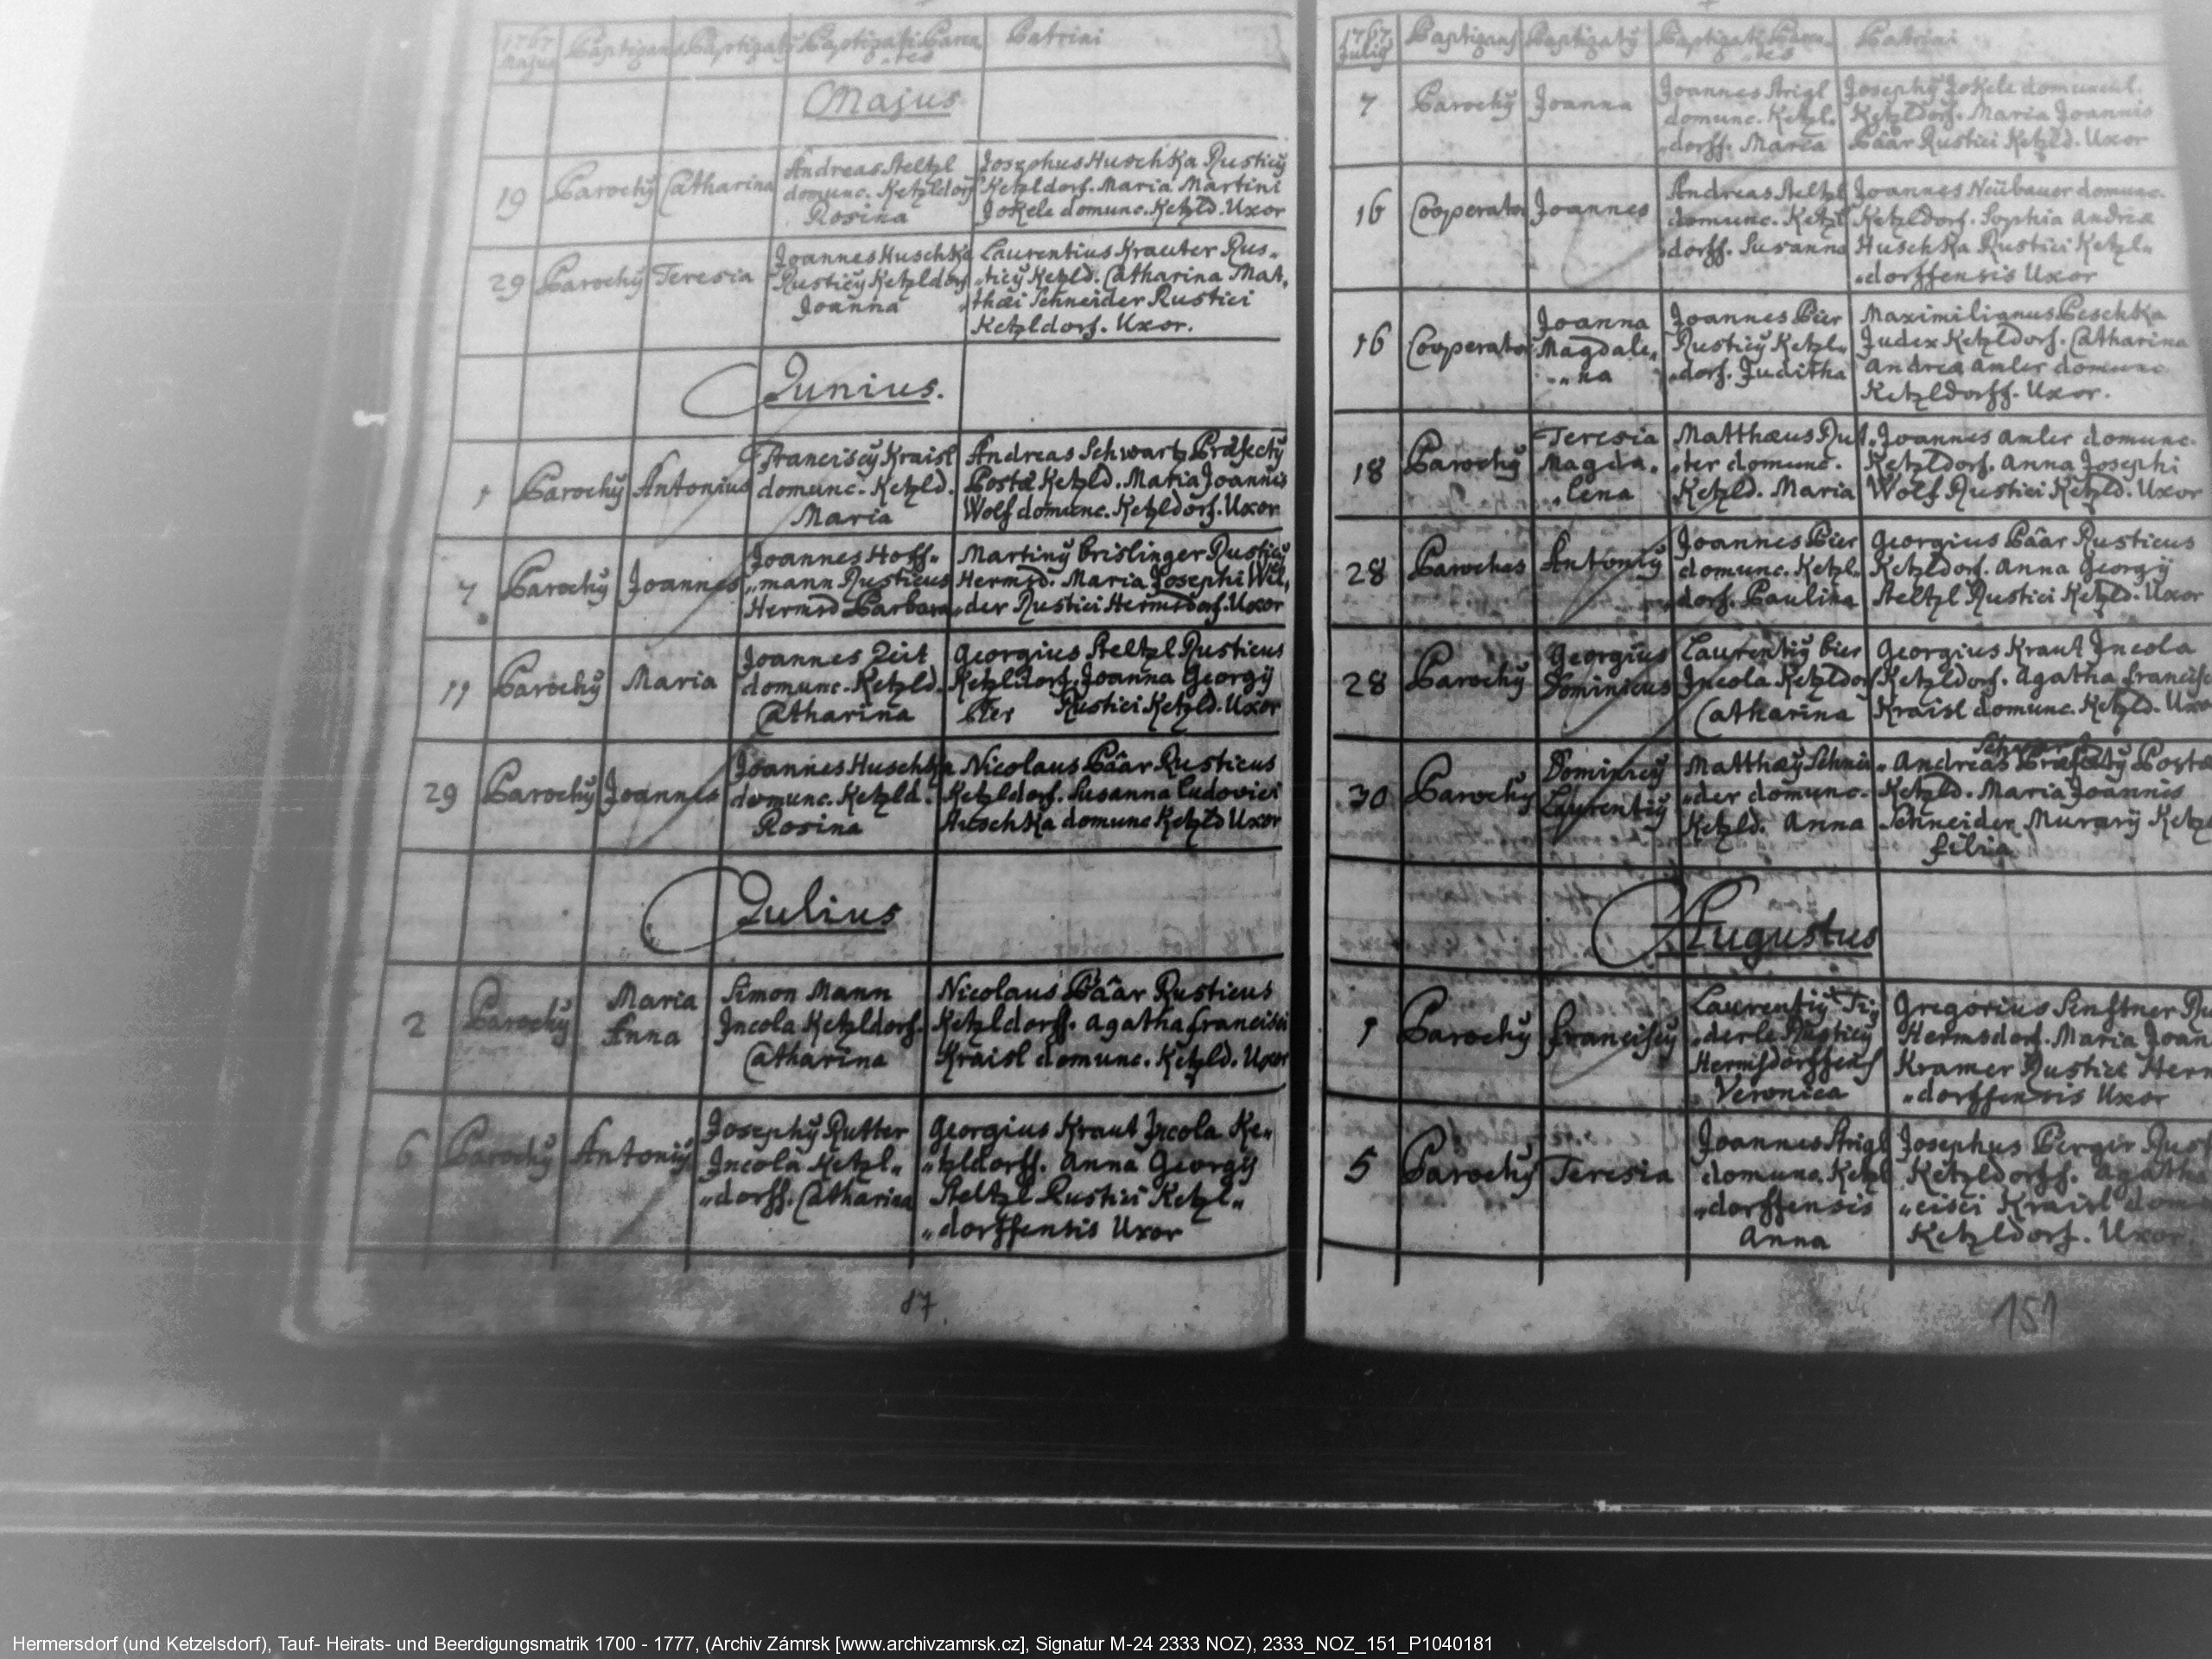 1767 Majus
Baptizans
Baptizatus
Baptizati Paren
tes
Patrini
Majus
19
Parochÿ
Catharina
Andreas Steltzl
domunc. Ketzldorf
Rosina
Josephus Huschka Rusticÿ
Ketzldorf. Maria Martini
Jokele domunc. Ketzld. Uxor
29
Parochÿ
Teresia
Joannes Huschka
Rusticÿ Ketzldorf
Joanna
Laurentius Krauter Rus„
„ticÿ Ketzld. Catharina Mat„
thæi Schneider Rustici
Ketzldorf. Uxor.
Junius.
1
Parochÿ
Antonius
Franciscÿ Kraisl
domunc. Ketzld.
Maria
Andreas Schwartz Præfectÿ
Postæ Ketzld. Maria Joannis
Wolf domunc. Ketzldorf. Uxor
7
Parochÿ
Joannes
Joannes Hoff„
„mann Rusticus
Hermsd Barbara
Martinÿ Brislinger Rusticÿ
Hermsd. Maria Josephi Wil„
„der Rustici Hermsdorf. Uxor
11
Parochÿ
Maria
Joannes Zeit
domunc. Ketzld.
Catharina
Georgius Steltzl Rusticus
Ketzldorf. Joanna Georgÿ
Bier Rustici Ketzld. Uxor
29
Parochÿ
Joannes
Joannes Huschka
domunc. Ketzld.
Rosina
Nicolaus Båar Rusticus
Ketzldorf. Susanna Ludovici
Huschka domunc Ketzld Uxor
Julius
2
Parochÿ
Maria
Anna
Simon Mann
Incola Ketzldorf.
Catharina
Nicolaus Båar Rusticus
Ketzldorff. Agatha Francisci
Kraisl domunc. Ketzld. Uxor
6
Parochÿ
Antoniÿ
Josephÿ Rutter
Incola Ketzl„
„dorff. Catharina
Georgius Kraut Incola Ke„
„tzldorff. Anna Georgÿ
Steltzl Rustici Ketzl„
„dorffensis Uxor
87
1767
Julÿ
Baptizans
Baptizatÿ
Baptizati Paren
tes
Patrini
7
Parochÿ
Joanna
Joannes Strigl
domunc. Ketzl„
„dorff. Maria
Josephÿ Jokele domuncul.
Ketzldorf. Maria Joannis
Båar Rustici Ketzld. Uxor
16
Cooperator
Joannes
Andreas Steltzl
domunc. Ketzl
„dorff. Susanna
Joannes Neübauer domunc.
Ketzldorf. Sophia Andrea
Huschka Rustici Ketzl„
„dorffensis Uxor
16
Cooperator
Joanna
Magdale„
„na
Joannes Bier
Rusticÿ Ketzl„
„dorf. Juditha
Maximilianus Peschka
Judex Ketzldorf. Catharina
Andrea Amler domunc
Ketzldorff. Uxor.
18
Parochÿ
Teresia
Magda„
„lena
Matthæus Rut„
„ter domunc.
Ketzld. Maria
Joannes Amler domunc.
Ketzldorf. Anna Josephi
Wolf Rustici Ketzld. Uxor
28
Parochus
Antoniÿ
Joannes Bier
domunc. Ketzl„
dorf. Paulina
Georgius Båar Rusticus
Ketzldorf. Anna Georgÿ
Steltzl Rustici Ketzld. Uxor
28
Parochÿ
Georgius
Dominicus
Laurentiÿ Bier
Incola Ketzldorf
Catharina
Georgius Kraut Incola
Ketzldorf. Agatha Francisci
Kraisl domunc. Ketzld. Uxor
30
Parochÿ
Dominicÿ
Laurentiÿ
Matthæÿ Schnei„
„der domunc.
Ketzld. Anna
Schwartz
Andreas Præfectÿ Postæ
Ketzld. Maria Joannis
Schneider Murarÿ Ketzl
filia
Augustus
1
Parochÿ
Franciscÿ
Laurentiÿ
„derle Rusticÿ
Hermsdorffens
Veronica
Gregorius Senftner Ru
Hermsdorf. Maria Joan
Kramer Rustici Herm
„dorffensis Uxor
5
Parochÿ
Teresia
Joannes Strigl
domunc. Ketzl
„dorffensis
Anna
Josephus Berger Rust
Ketzldorff. Agatha
„cisci Kraisl dom
Ketzldorf. Uxor
151
Hermersdorf (und Ketzelsdorf), Tauf- Heirats- und Beerdigungsmatrik 1700 - 1777, (Archiv Zámrsk [www.archivzamrsk.cz], Signatur M-24 2333 NOZ), 2333_NOZ_151_P1040181